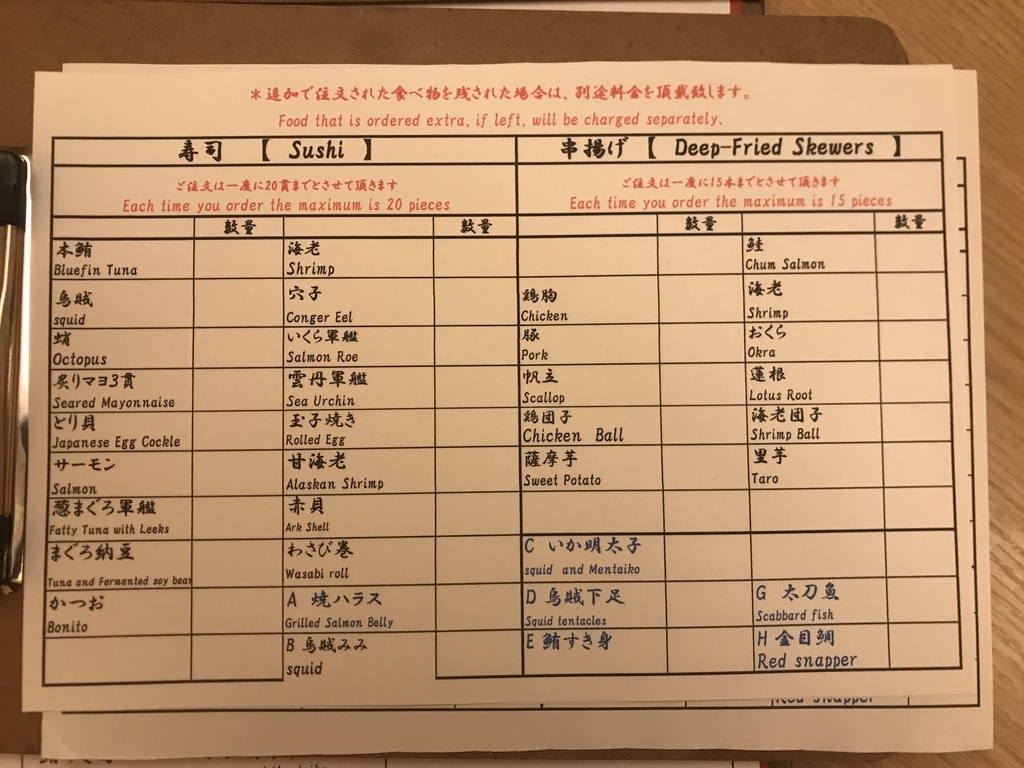 ＊追加で注文された食べ物を残された場合は、別途料金を頂戴致します。
Food that is ordered extra, if left, will be charged separately.
寿司 【 Sushi 】
ご注文は一度に20貫までとさせて頂きます
Each time you order the maximum is 20 pieces
数量 数量
本鮪 海老
Bluefin Tuna Shrimp
烏賊 穴子
squid Conger Eel
蛸 いくら軍艦
Octopus Salmon Roe
炙りマヨ3貫 雲丹軍艦
Seared Mayonnaise Sea Urchin
とり貝 玉子焼き
Japanese Egg Cockle Rolled Egg
サーモン 甘海老
Salmon Alaskan Shrimp
葱まぐろ軍艦 赤貝
Fatty Tuna with Leeks Ark Shell
まぐろ納豆 わさび巻
Tuna and Fermented soy bean Wasabi roll
かつお A 焼ハラス
Bonito Grilled Salmon Belly
B 烏賊みみ
squid
串揚げ 【 Deep-Fried Skewers 】
ご注文は一度に15本までとさせて頂きます
Each time you order the maximum is 15 pieces
数量 数量
鮭
Chum Salmon
鶏胸 海老
Chicken Shrimp
豚 おくら
Pork Okra
帆立 蓮根
Scallop Lotus Root
鶏団子 海老団子
Chicken Ball Shrimp Ball
薩摩芋 里芋
Sweet Potato Taro
C いか明太子
squid and Mentaiko
D 烏賊下足 G 太刀魚
Squid tentacles Scabbard fish
E 鮪すき身 H 金目鯛
Red snapper
Red snapper